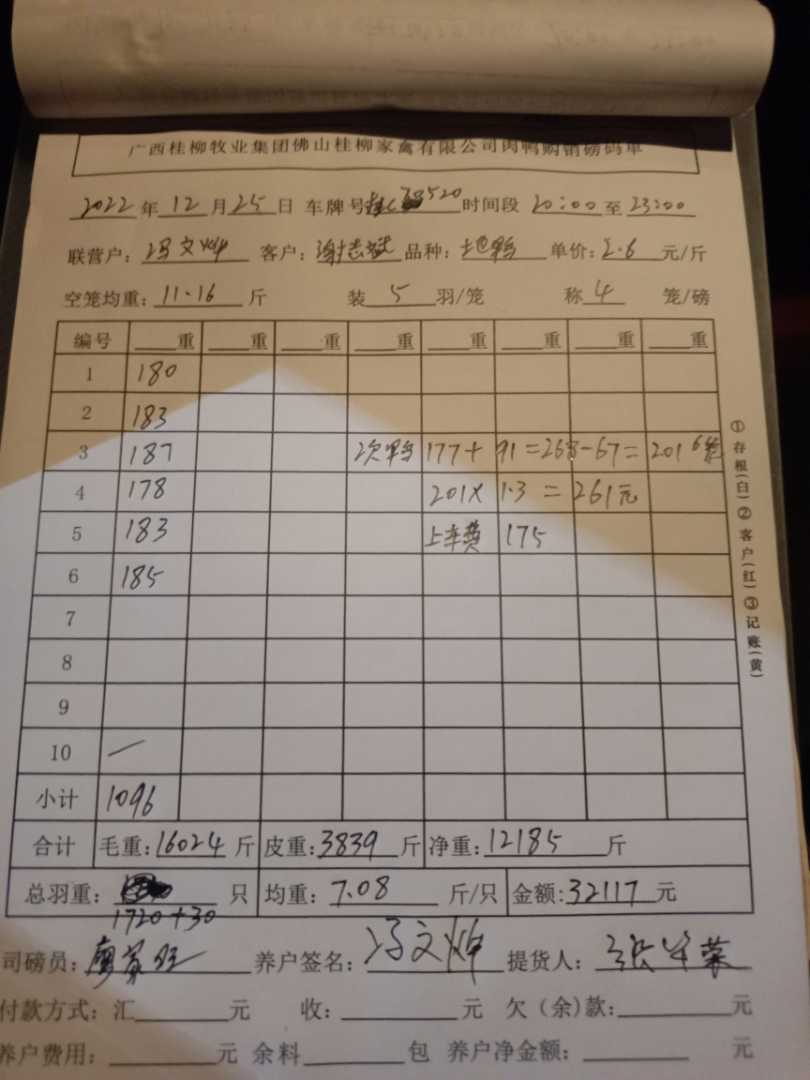 广西桂柳牧业集团佛山桂柳家禽有限公司肉鸭购销磅码单
2022年12月25日 车牌号520时间段20:00至23:00
联营户:冯文 客户:谢志 品种: 单价:2.6元/斤
空笼均重:11.16斤 装5羽/笼 称4笼/磅
编号 重 重 重 重 重 重 重 重
1 180
2 183
3 187 次鸭 177+91=268-67=201 6笼
4 178 201×1.3=261元
5 183 上车费 175
6 185
7
8
9
10 /
小计 1096
合计 毛重:16024斤 皮重:3839斤 净重:12185斤
总羽重: 只 均重:7.08斤/只 金额:32117元
1720+30
司磅员:廖家旺 养户签名:冯文 提货人:荣
付款方式:汇 元 收: 元 欠(余)款: 元
养户费用: 元 余料 包 养户净金额: 元
①存根(白)②客户(红)③记账(黄)